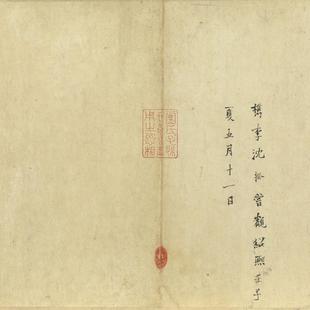 檇李沈揆嘗觀紹熙壬子
夏五月十一日